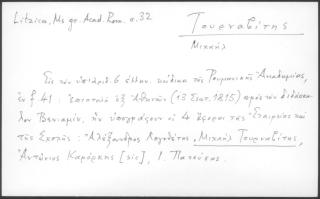 Litzica, Ms gr. Acad. Rom. σ. 32
Τουρναβίτης
Μιχαήλ
Εἰς τὸν ὑπ' ἀριθ. 6 ἑλλην. κώδικα τῆς Ρουμανικῆς Ἀκαδημίας,
ἐν f. 41: ἐπιστολὴ ἐξ Ἀθηνῶν (13 Σεπτ. 1815) πρὸς τὸν διδάσκα-
λον Βενιαμίν, ἣν ὑπογράφουν οἱ 4 ἔφοροι τῆς Ἑταιρείας καὶ
τῆς Σχολῆς: Ἀλέξανδρος Λογοθέτης, Μιχαὴλ Τουρναβίτης,
Ἀντώνιος Καμάρκης [sic], Ι. Πατούσας.